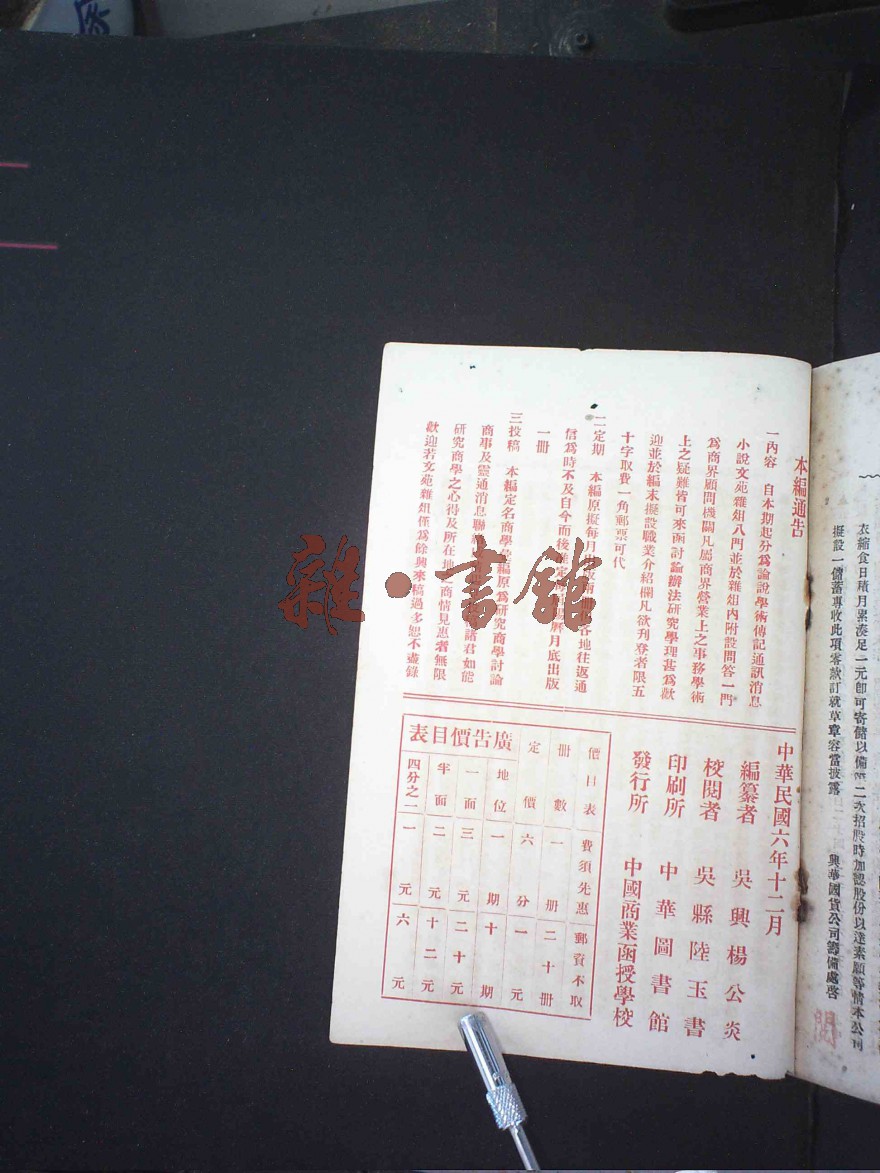 本編通告
一內容　自本期起分為論說學術傳記通訊消息
小說文苑雜俎八門並於雜俎內附設問答一門
為商界顧問機關凡屬商界營業上之事務學術
上之疑難皆可來函討論辦法研究學理甚為歡
迎並於編末擬設職業介紹欄凡欲刋登者限五
十字取費一角郵票可代
二定期　本編原擬每月
各地往返通
信為時不及自今而後
月底出版
一冊
三投稿　本編定名商學
編原為研究商學討論
商事及靈通消息聯
諸君如能
研究商學之心得及所在地之商情見惠者無限
歡迎若文苑雜俎僅為餘興來稿過多恕不盡錄
中華民國六年十二月
編纂者　吳興楊公炎
校閱者　吳縣陸玉書
印刷所　中華圖書館
發行所　中國商業函授學校
價目表　費須先惠　郵資不取
冊數　一冊　二十冊
定價　六分　一元
廣告價目表
地位　一期　十期
一面　三元　二十元
半面　二元　十二元
四分之一　一元　六元
衣縮食日積月累湊足一元卽可寄儲以備第二次招股時加認股份以達素願等情本公司
擬設一儲蓄專收此項零款訂就草章容當披露　興華國貨公司籌備處啓
雜·書館